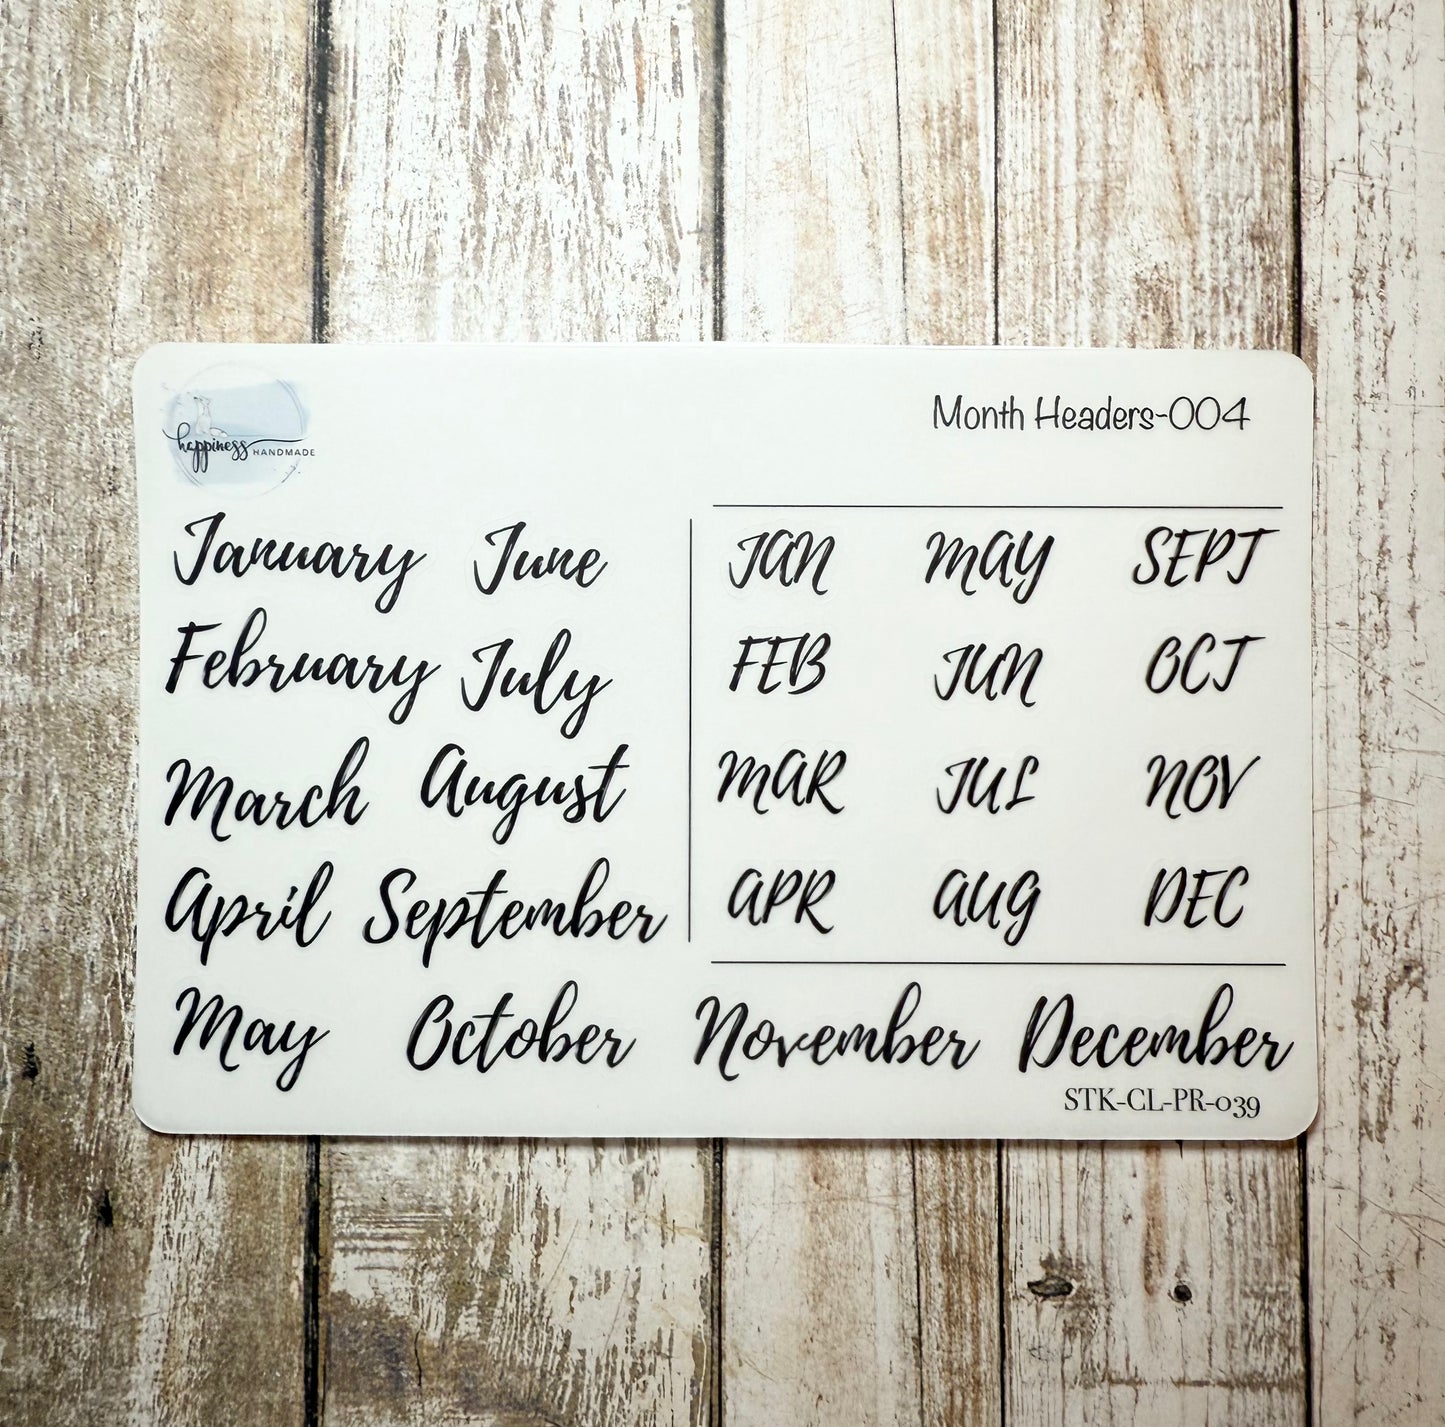 happiness HANDMADE
Month Headers-004
January June
February July
March August
April September
May October November December
JAN MAY SEPT
FEB JUN OCT
MAR JUL NOV
APR AUG DEC
STK-CL-PR-039